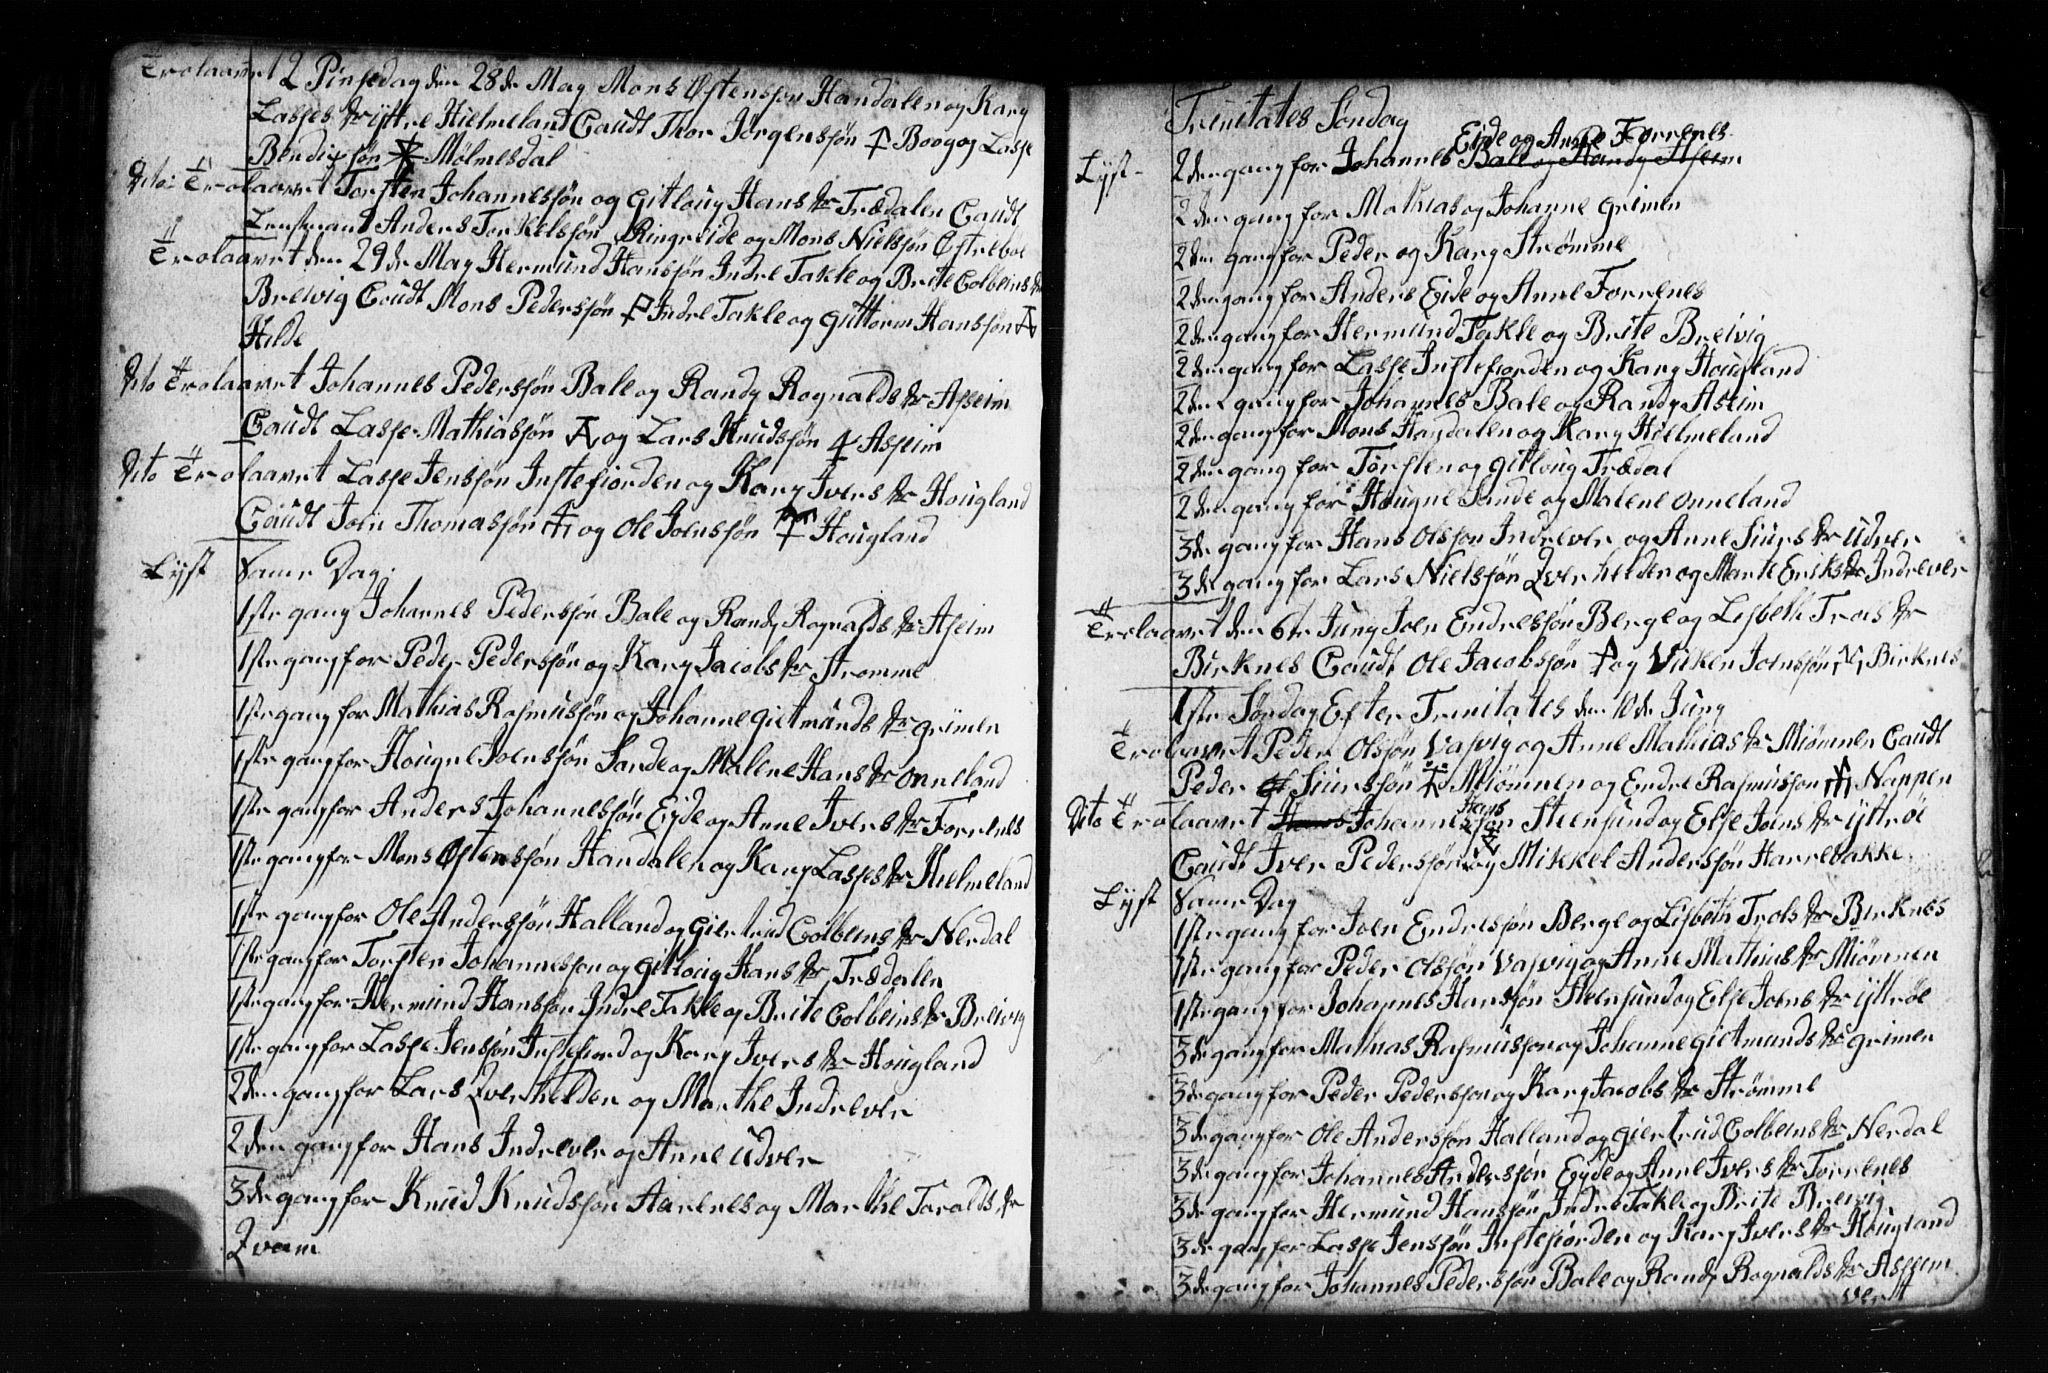 Trolaavet 2 Pinsedag den 28de May Mons Østenssøn Handalen og Kary
Lasses dr yttre Hielmeland Caudt Thor Jørgenssøn Boog og Lasse
Bendixsøn Mølmesdal
Dito Trolaavet Torsten Johannessøn og Gitloug Hans dr Trædalen Caudt
Lensmand Anders Torkelssøn Ringreide og Mons Nielssøn Østreboe
Trolaavet den 29de May Hermund Hanssøn Indre Takle og Brite Colbeins dr
Breivig Caudt Mons Pederssøn Indre Takle og Guttorm Hanssøn
Hilde
Dito Trolaavet Johannes Pederssøn Bale og Randy Rognalds dr Asseim
Caudt Lasse Mathiassøn og Lars Knudssøn Asseim
Dito Trolaavet Lasse Jenssøn Instefiorden og Kary Ivers dr Hougland
Caudt Joen Thomassøn og Ole Joenssøn Hougland
Lyst Same Dag
1ste gang Johannes Pederssøn Bale og Randy Rognalds dr Aseim
1ste gang for Peder Pederssøn og Kary Jacobs dr Strømme
1ste gang for Mathias Rasmussøn og Johanne Gietmunds dr Grimen
1ste gang for Hougne Joenssøn Sande og Malene Hans dr Onneland
1ste gang for Anders Johannessøn Eyde og Anne Ivers dr Forrenes
1ste gang for Mons Østenssøn Handalen og Kary Lasses dr Hielmeland
1ste gang for Ole Anderssøn Halland og Giertrud Colbeins dr Nerdal
1ste gang for Torsten Johannessøn og Gitloug Hans dr Trædalen
1ste gang for Hermund Hanssøn Indre Takle og Brite Colbeins dr Breivig
1ste gang for Lasse Jenssøn Instefiord og Kary Ivers dr Hougland
2den gang for Lars Qverhelden og Marthe Indrever
2den gang for Hans Indrever og Anne Udver
3de gang for Knud Knudssøn Aarenes og Marthe Toralds dr
Qvam
Trinitates Søndag
Eide og Anne Forrenes
Lyst 2den gang for Johannes Bale og Randy Aseim
2den gang for Mathias og Johanne Grimen
2den gang for Peder og Kary Strømme
2den gang for Anders Eide og Anne Forrenes
2den gang for Hermund Takle og Brite Breivig
2den gang for Lasse Instefiorden og Kary Hougland
2den gang for Johannes Bale og Randy Aseim
2den gang for Mons Handalen og Kary Hielmeland
2den gang for Torsten og Gitloug Trædal
2den gang for Hougne Sande og Malene Onneland
3de gang for Hans Olssøn Indrever og Anne Siurs dr Udver
3de gang for Lars Nielssøn Qverhelden og Marte Eriks dr Indrever
Trolaavet den 6te Juny Joen Endressøn Berge og Lisbeth Troels dr
Birknes Caudt Ole Jacobssøn og Villen Joenssøn Birknes
1ste Søndag Efter Trinitates den 10de Juny
Trolaavet Peder Olssøn Vassvig og Anne Mathias dr Miømnen Caudt
Peder Siurssøn Miømnen og Endre Rasmussøn Nappen
Hans
Dito Trolaavet Hans Johannessøn Steensund og Else Joens dr Yttrøe
Caudt Iver Pederssøn og Mikkel Anderssøn Harrebakke
Lyst Same Dag
1ste gang for Joen Endressøn Berge og Lisbeth Trols dr Birknes
1ste gang for Peder Olssøn Vassvig og Anne Mathias dr Miømnen
1ste gang for Johannes Hanssøn Steensund og Else Joens dr Yttrøe
3de gang for Mathias Rasmussøn og Johanne Gietmunds dr Grimen
3de gang for Peder Pederssøn og Kary Jacobs dr Strømme
3de gang for Ole Anderssøn Halland og Giertrud Colbeins dr Nerdal
3de gang for Johannes Anderssøn Eyde og Anne Ivers dr Forrenes
3de gang for Hermund Hanssøn Indre Takle og Brite Breivig
3de gang for Lasse Jenssøn Instefiorden og Kary Ivers dr Hougland
3de gang for Johannes Pederssøn Bale og Randy Rognalds dr Asseim
Vert